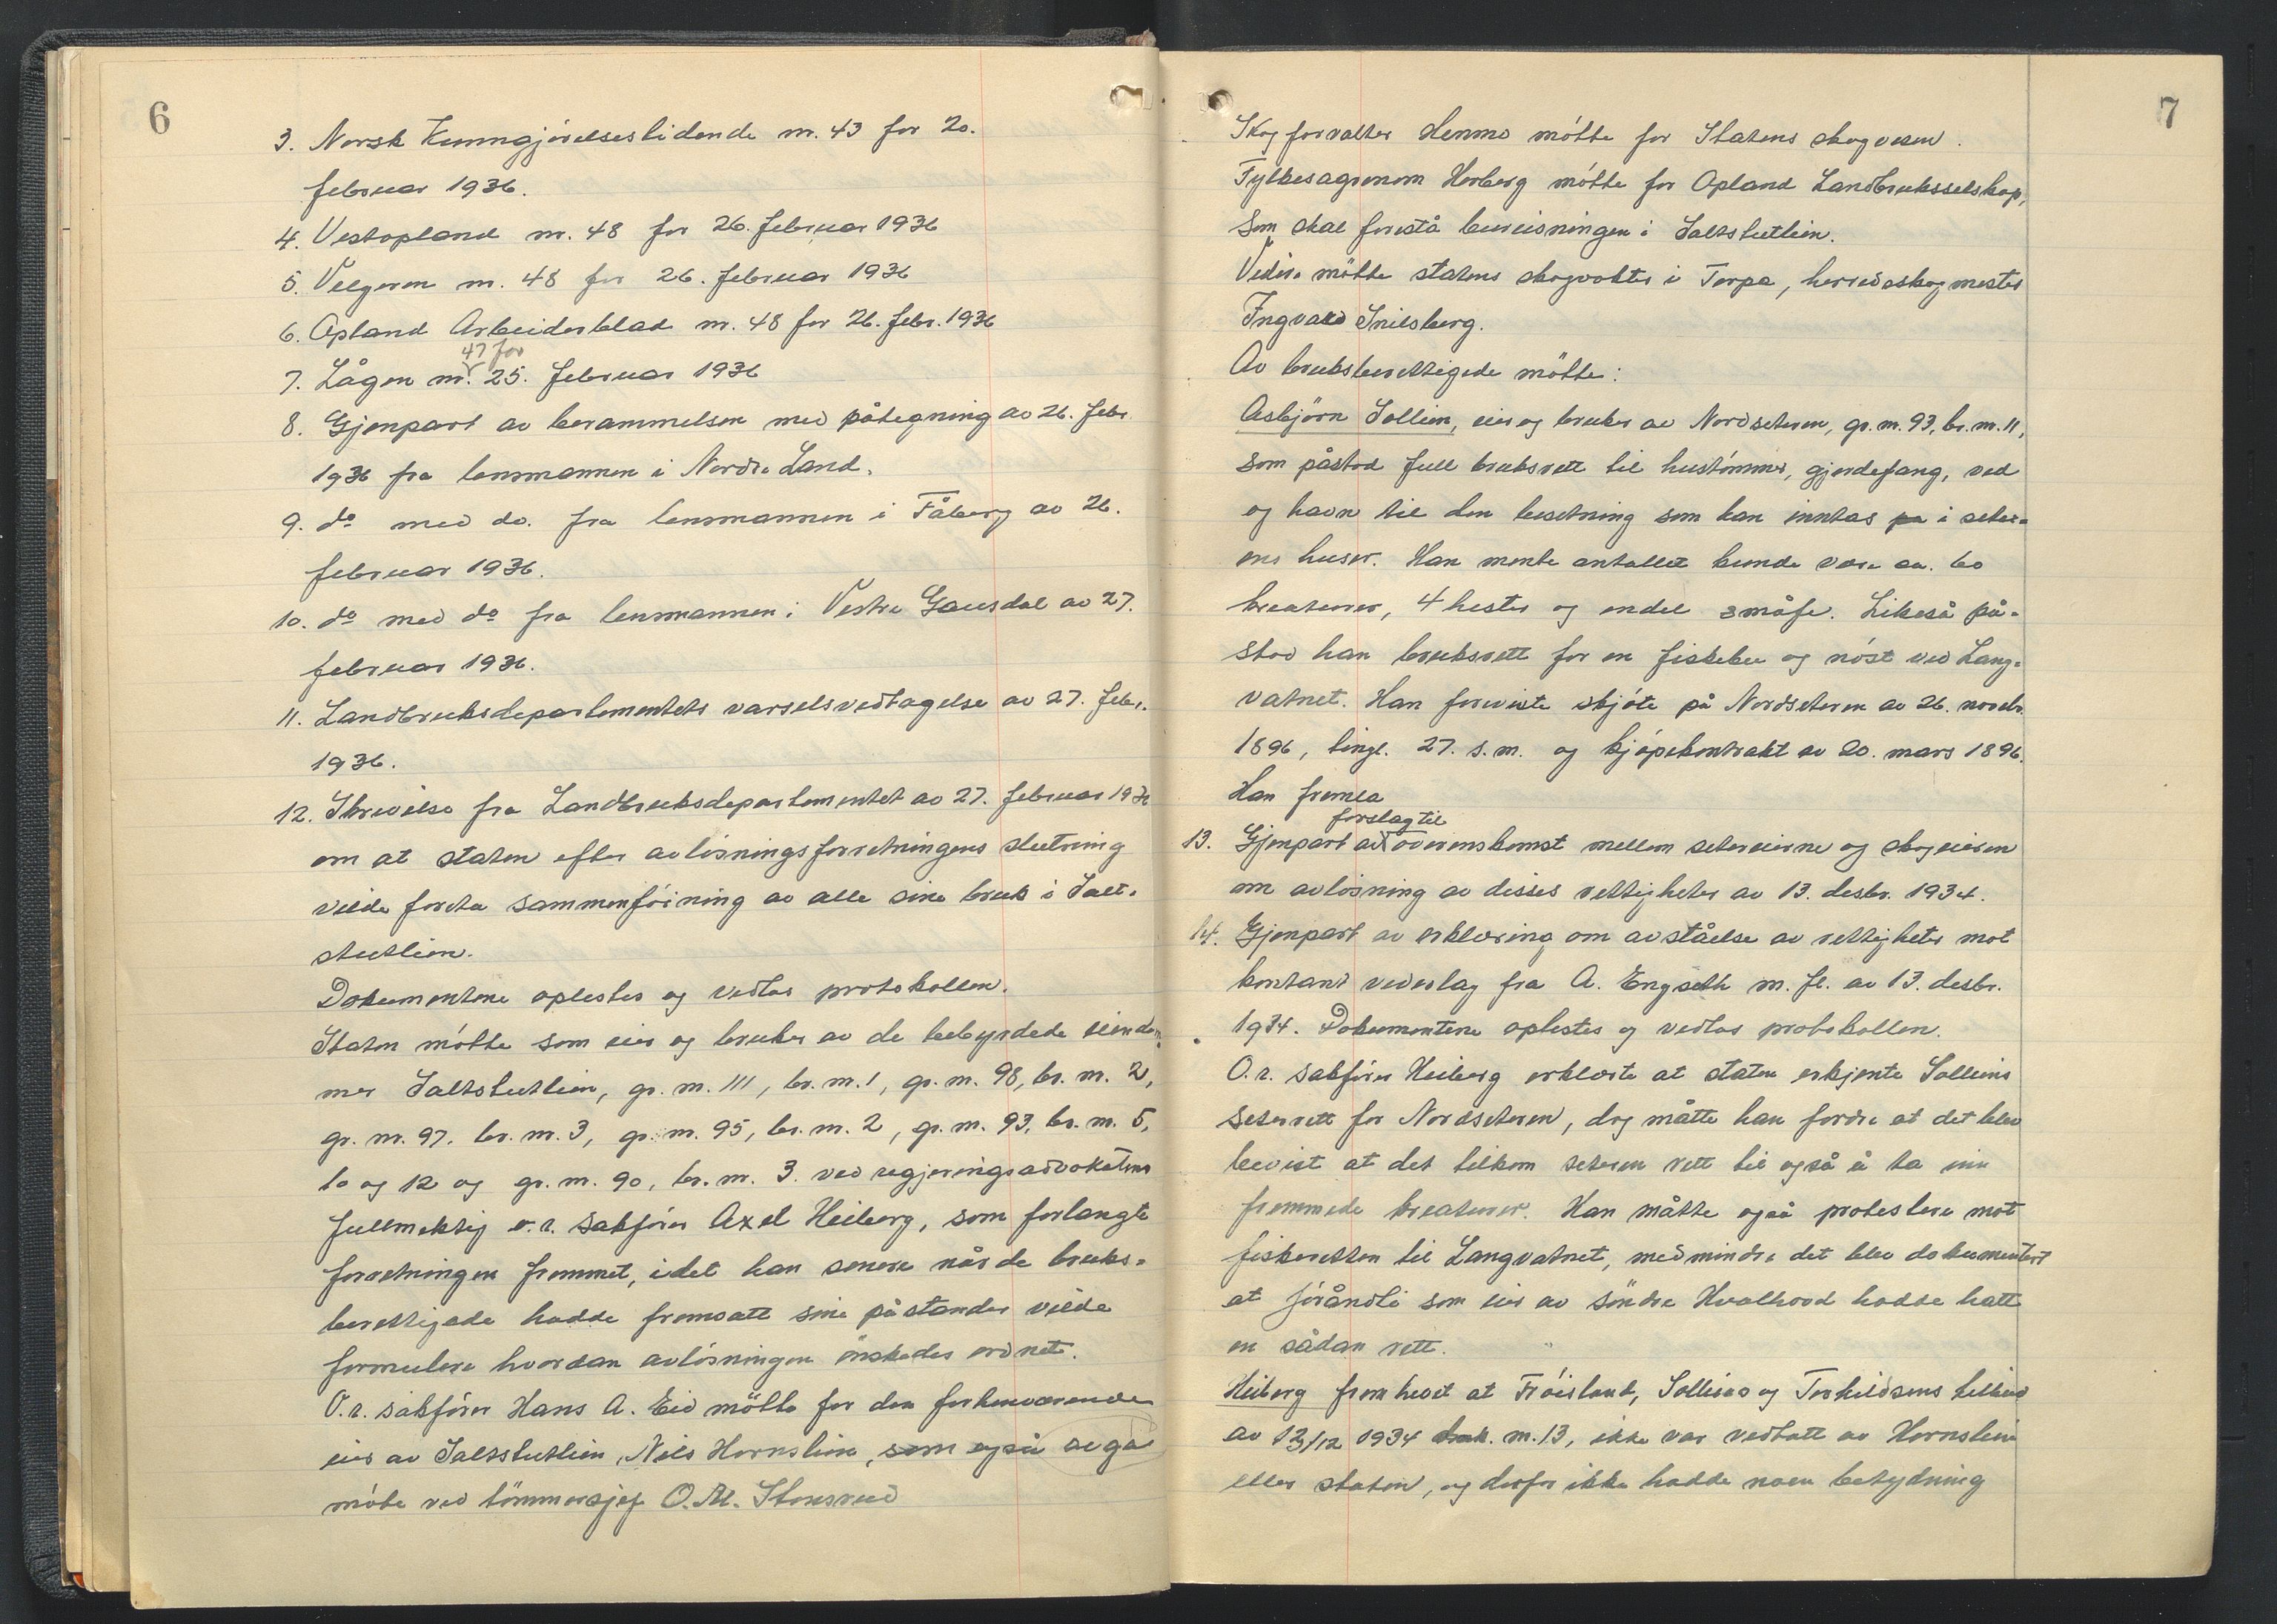 6
3. Norsk Kunngjørelsestidende nr. 43 for 20.
februar 1936.
4. Vestopland nr. 48 for 26. februar 1936
5. Velgeren nr. 48 for 26. februar 1936
6. Opland Arbeiderblad nr. 48 for 26. febr. 1936
47 for
7. Lågen nr. 25. februar 1936
8. Gjenpart av berammelsen med påtegning av 26. febr.
1936 fra lensmannen i Nordre Land.
9. do med do. fra lensmannen i Fåberg av 26.
februar 1936.
10. do med do fra lensmannen i Vestre Gausdal av 27.
februar 1936.
11. Landbruksdepartementets varselsvedtagelse av 27. febr.
1936.
12. Skrivelse fra Landbruksdepartementet av 27. februar 1936
om at staten efter avløsningsforretningens slutning
vilde foreta sammenføining av alle sine bruk i Salt-
stutlien.
Dokumentene oplestes og vedlas protokollen.
Staten møtte som eier og bruker av de bebyrdede eiendom-
mer Saltstutlien, gr. nr. 111, br. nr. 1, gr. nr. 98, br. nr. 2,
gr. nr. 97, br. nr. 3, gr. nr. 95, br. nr. 2, gr. nr. 93, br. nr. 5,
10 og 12 og gr. nr. 90, br. nr. 3. ved regjeringsadvokatens
fullmektig o.r. sakfører Axel Heiberg, som forlangte
forretningen fremmet, idet han senere når de bruks-
berettigede hadde fremsatt sine påstander vilde
formulere hvordan avløsningen ønskedes ordnet.
O.r. sakfører Hans A. Eid møtte for den forhenværende
eier av Saltstutlien, Nils Hornslien, som også avga
møte ved tømmersjef O. M. Stensrud
7
Skogforvalter Henmo møtte for Statens skogvesen.
Fylkesagronom Horberg møtte for Opland Landbruksselskap,
som skal forestå bureisningen i Saltstutlien.
Videre møtte statens skogvokter i Torpa, herredsskogmester
Ingvald Snilsberg.
Av bruksberettigede møtte:
Asbjørn Sollien, eier og bruker av Nordseteren, gr. nr. 93, br. nr. 11,
som påstod full bruksrett til hustømmer, gjerdefang, ved
og havn til den besetning som kan inntas på i seter-
ens huser. Han mente antallet kunde være ca. 60
kreaturer, 4 hester og endel småfe. Likeså på-
stod han bruksrett for en fiskebu og nøst ved Lang-
vatnet. Han foreviste skjøte på Nordseteren av 26. novbr.
1896, tingl. 27. s.m. og kjøpekontrakt av 20. mars 1896.
Han fremla
forslag til
13. Gjenpart av overenskomst mellem setereierne og skogeieren
om avløsning av disses rettigheter av 13. desbr. 1934.
14. Gjenpart av erklæring om avståelse av rettigheter mot
kontant vederlag fra A. Engseth m. fl. av 13. desbr.
1934. Dokumentene oplestes og vedlas protokollen.
O.r. sakfører Heiberg erklærte at staten erkjente Solliens
seterrett for Nordseteren, dog måtte han fordre at det blev
bevist at det tilkom seteren rett til også å ta inn
fremmede kreaturer. Han måtte også protestere mot
fiskeretten til Langvatnet, medmindre det blev dokumentert
at som eier av søndre hadde hatt
en sådan rett.
Heiberg fremhevet at Frøisland, Solliens og Torkildsens tilbud
av 13/12 1934 dok. nr. 13, ikke var vedtatt av Hornslien
eller staten, og derfor ikke hadde noen betydning